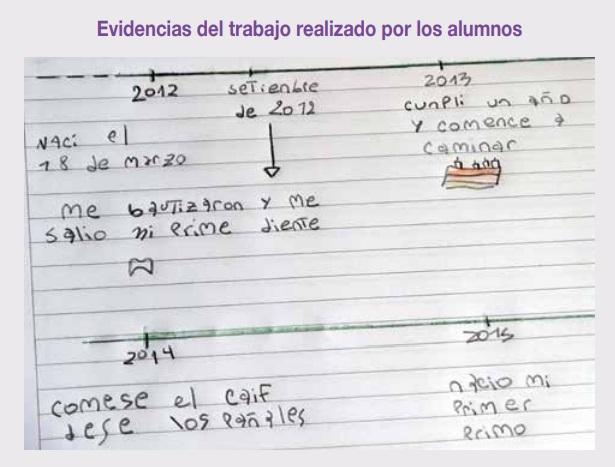 Evidencias del trabajo realizado por los alumnos
2012
seTienbre
de 2012
2013
cunpli un año
y comence a
caminar
Naci el
18 de marzo
me bautizaron y me
salio mi prime diente
2014
2015
comese el caif
dese los pañales
nacio mi
primer
primo